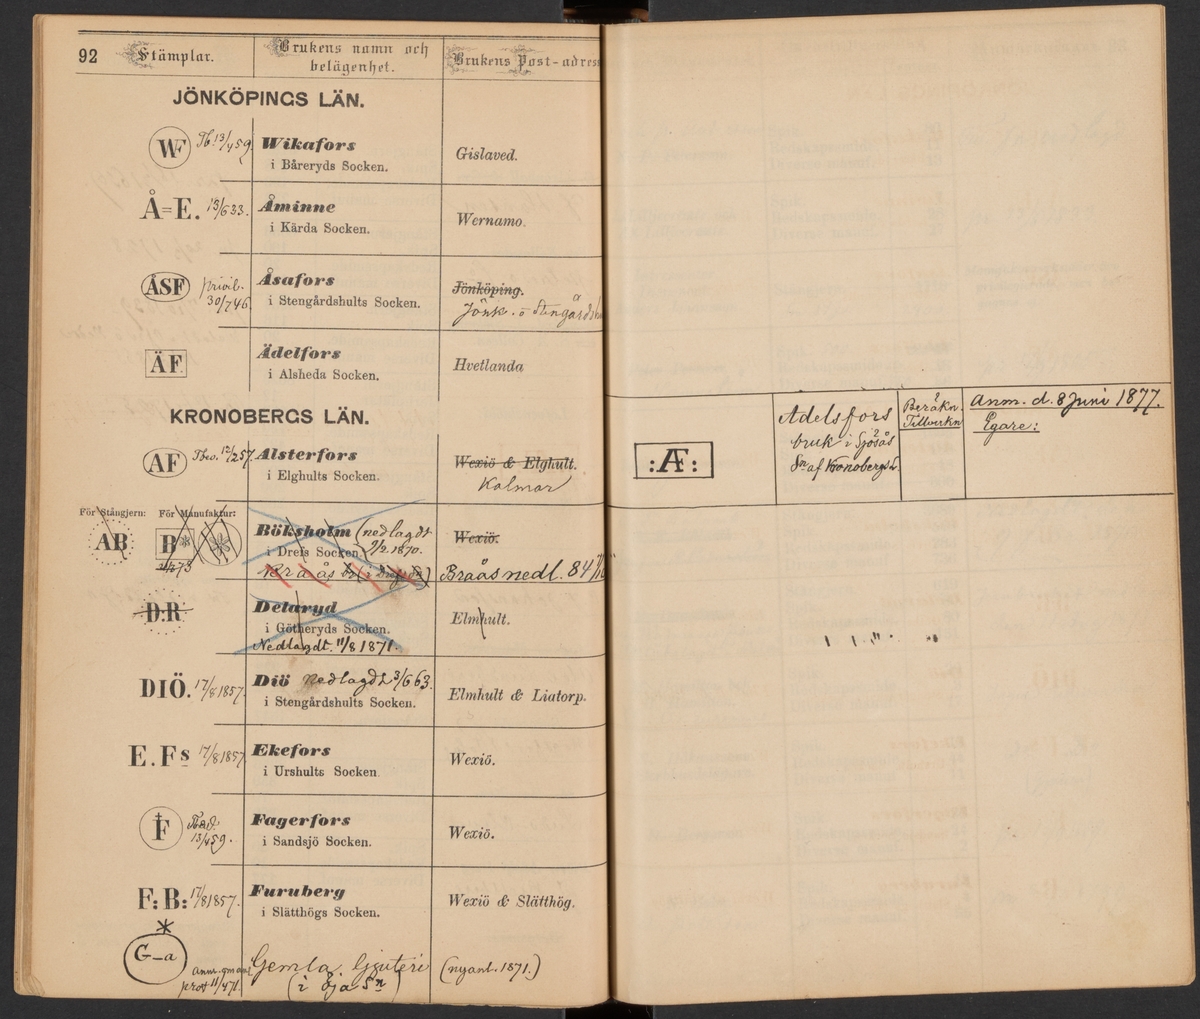 92
Stämplar.
Brukens namn och
belägenhet.
Brukens Post-adress
JÖNKÖPINGS LÄN.
WF
13/4 59.
Wikafors
i Båreryds Socken.
Gislaved.
Å=E.
13/6 33.
Åminne
i Kärda Socken.
Wernamo.
ÅSF
privil.
30/7 46
Åsafors
i Stengårdshults Socken.
Jönköping.
Jönk. o
ÄF
Ädelfors
i Alsheda Socken.
Hvetlanda
KRONOBERGS LÄN.
AF
12/2 57
Alsterfors
i Elghults Socken.
Wexiö & Elghult.
Kalmar
För Stångjern:
För Manufaktur:
AB
B*
Böksholm (nedlagdt
i Drefs Socken. 9/2 1870.
Braås
Wexiö.
Braås nedl. 84
D.R
Delaryd
i Götheryds Socken.
Nedlagdt. 11/8 1871.
Elmhult.
DIÖ. 17/8 1857.
Diö nedlagdt 3/6 63.
i Stengårdshults Socken.
Elmhult & Liatorp.
E.Fs 17/8 1857
Ekefors
i Urshults Socken
Wexiö.
F
13/4 59.
Fagerfors
i Sandsjö Socken.
Wexiö.
F:B: 17/8 1857.
Furuberg
i Slätthögs Socken.
Wexiö & Slätthög.
*
G–a
prot 11/4 71.
Gemla Gjuteri
(i Öja Sn)
(nyanl. 1871.)
:Æ:
Adelsfors
bruk i Sjösås
Sn af Kronobergs L.
Beräkn.
Tillverkn
Anm. d. 8 Juni 1877.
Egare: